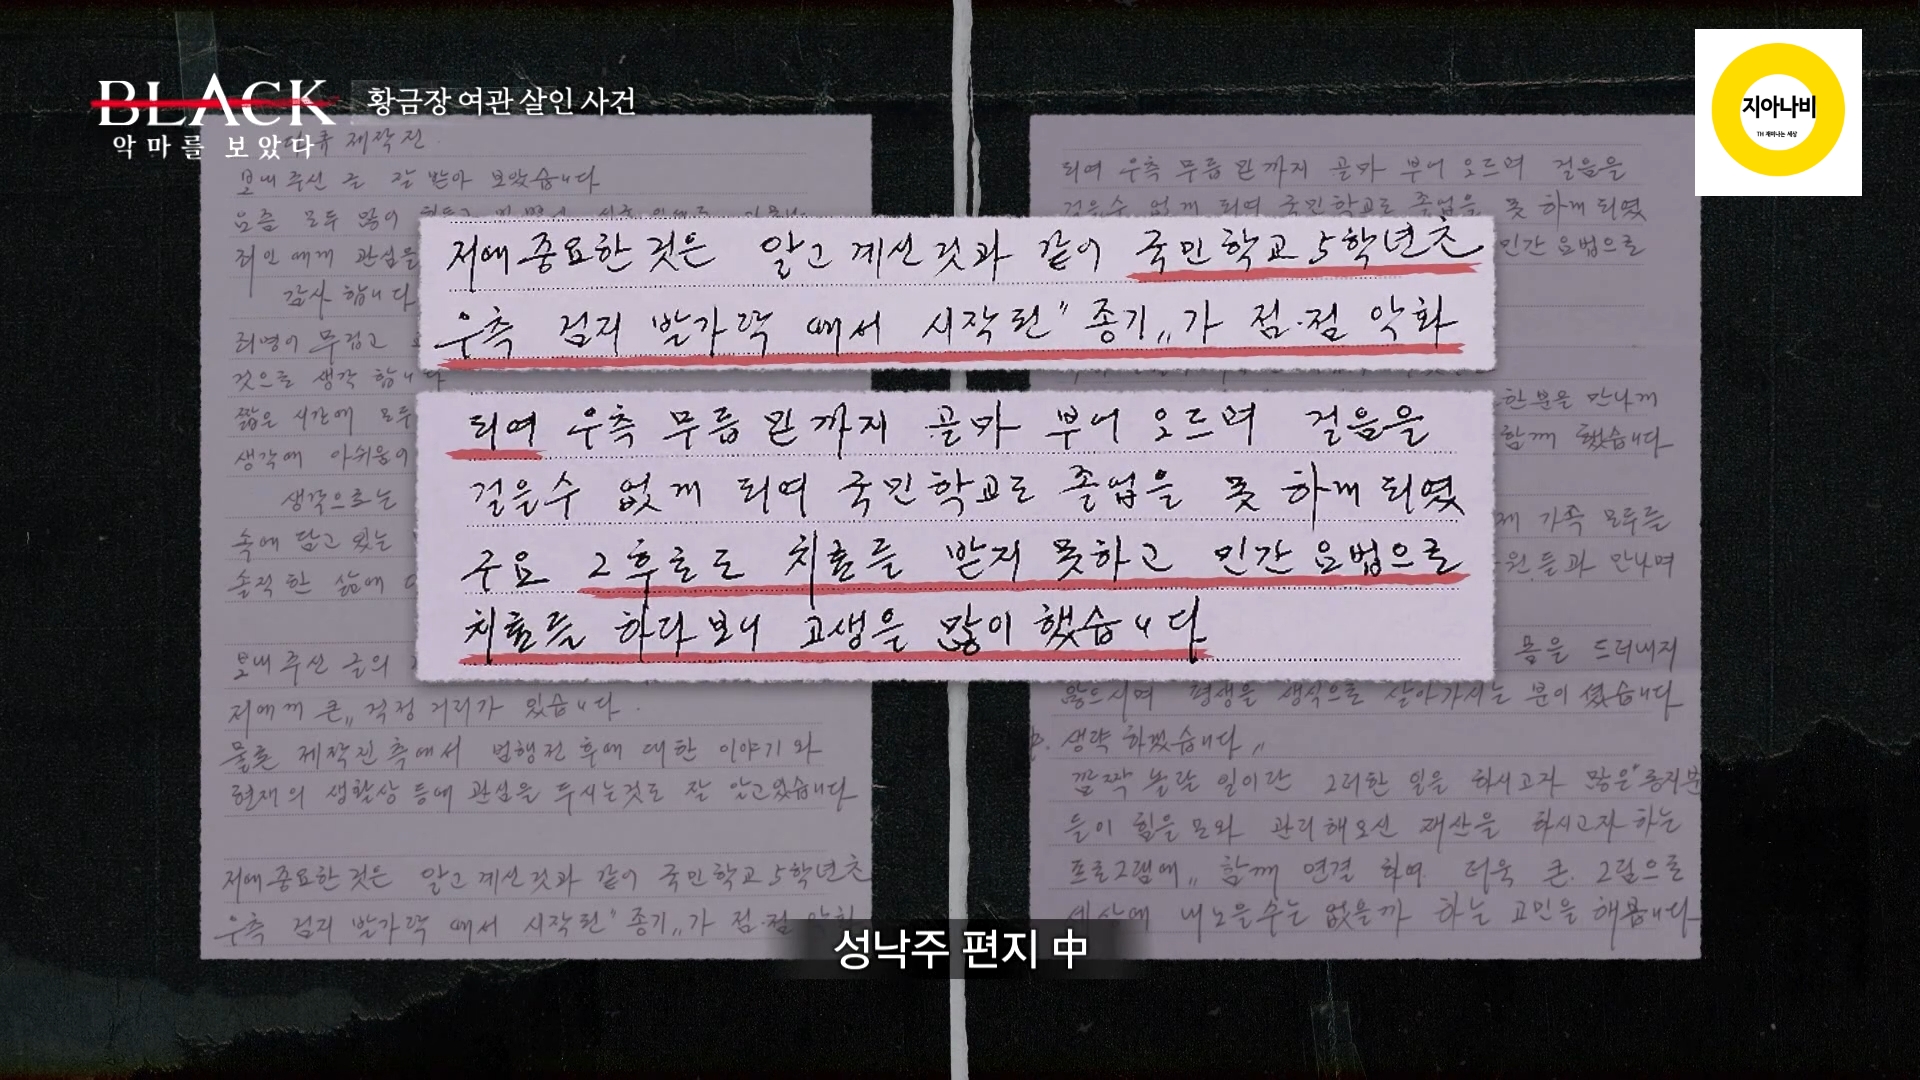 BLACK
악마를 보았다
황금장 여관 살인 사건
지아나비
TH 재미나는 세상
제작진
보내주신 글 잘 받아 보았습니다
요즘 모두 많이
죄인에게 관심을
감사 합니다
죄명이 무겁고
것으로 생각 합니다
짧은 시간에 모두
생각에 아쉬움이
생각으로는
속에 담고 있는
솔직한 삶에
보내주신 글의
저에게 큰,, 걱정거리가 있습니다.
물론 제작진측에서 범행전후에 대한 이야기와
현재의 생활상 등에 관심을 두시는것도 잘 알고있습니다
저에 중요한것은 알고계신것과 같이 국민학교 5학년초
우측 검지 발가락 에서 시작된 "종기,,가 점.점 악화
저에 중요한 것은 알고 계신 것과 같이 국민학교 5학년초
우측 검지 발가락 에서 시작된 "종기,,가 점.점 악화
되여 우측 무릅 밑 까지 골마 부어 오르며 걸음을
걸을수 없게 되여 국민학교도 졸업을 못 하게 되였
구요 그후로도 치료를 받지 못하고 민간요법으로
치료를 하다보니 고생을 많이 했습니다
되여 우측 무릅 밑 까지 골마 부어 오르며 걸음을
걸을수 없게 되여 국민학교도 졸업을 못 하게 되였
민간요법으로
한분을 만나게
함께 했습니다
가족 모두를
원.들과 만나며
몸을 드러내지
않으시며 평생을 생식으로 살아가시는 분이 셨습니다
생략 하겠습니다,,
깜짝 놀랄 일이란 그러한 일을 하시고자 많은"종지분
들이 힘을 모와 관리해오신 재산을 하시고자 하는
프로그램에,, 함께 연결 하여. 더욱 큰. 그림으로
세상에 내노을수는 없을까 하는 고민을 해봅니다
성낙주 편지 中